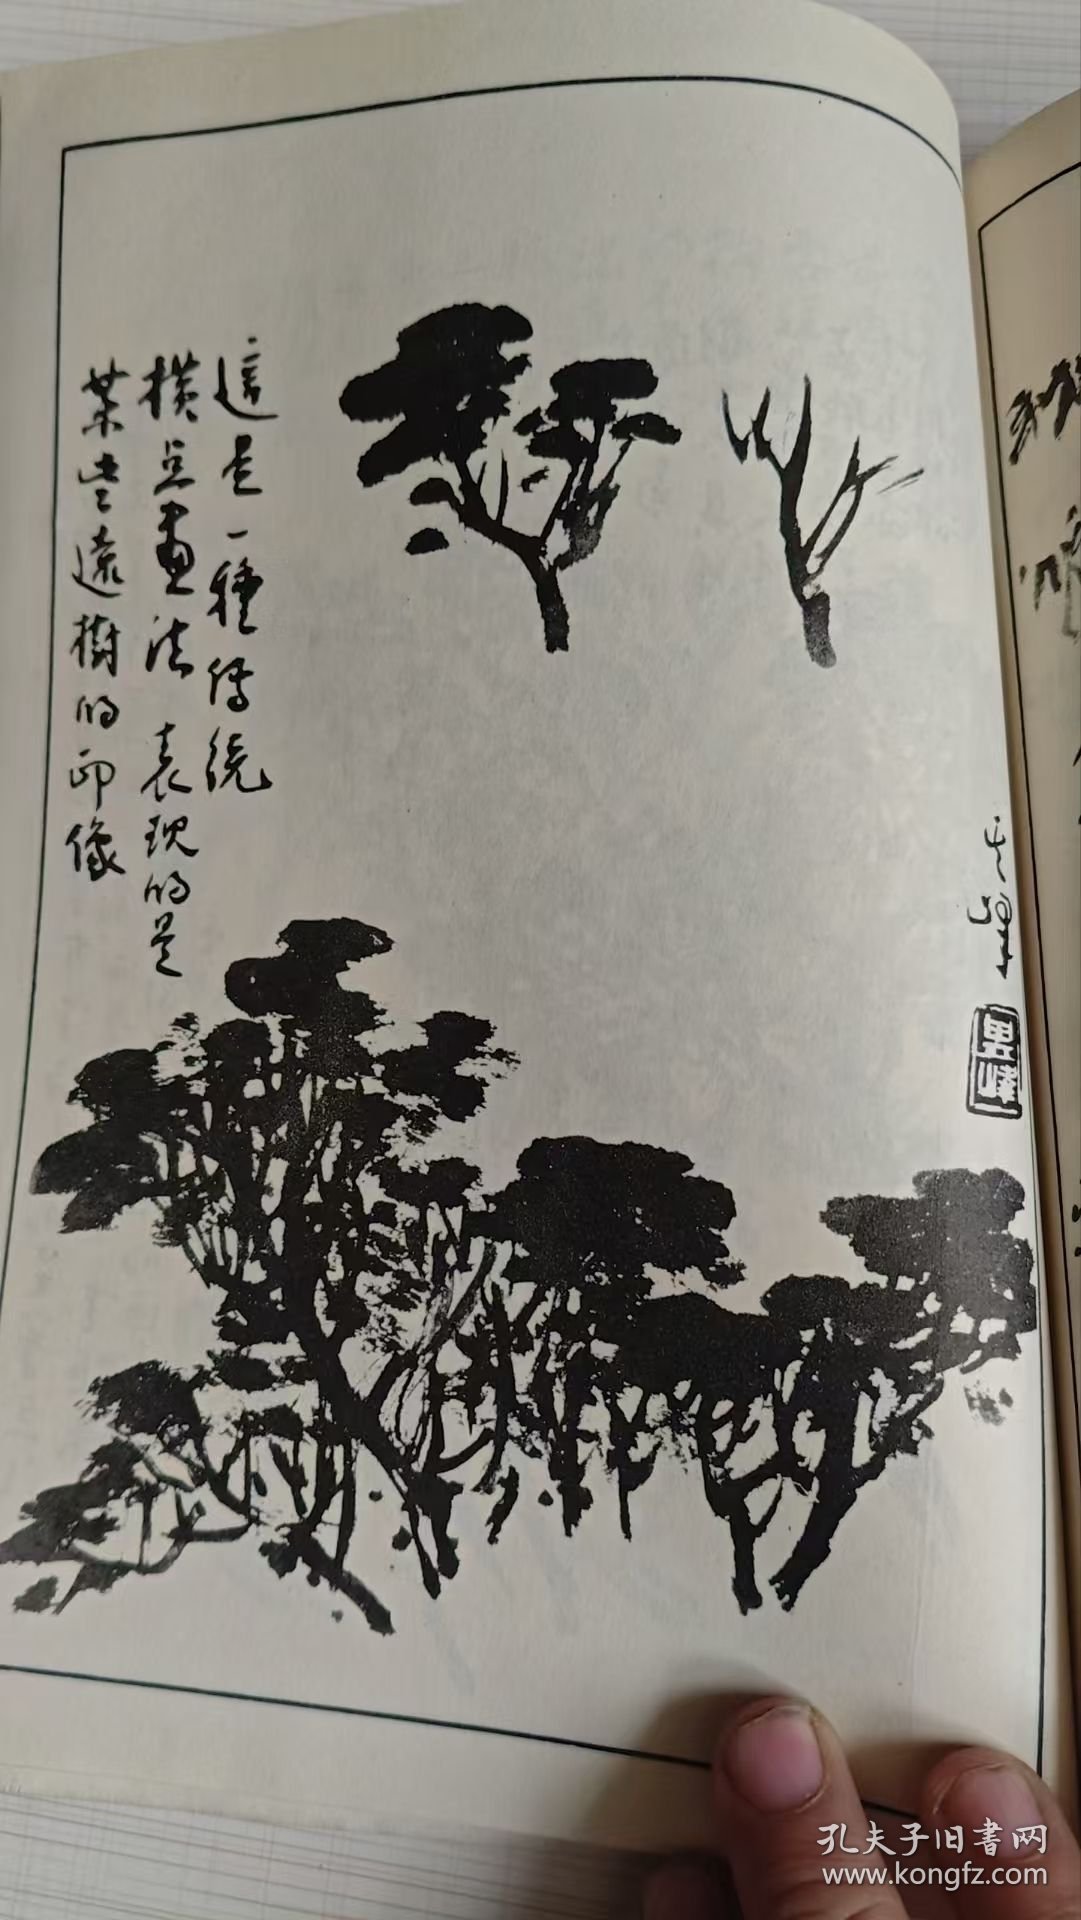 這是一種傳統
橫点畫法 表現的是
某些遠樹的印像
孔夫子旧書网
www.kongfz.com